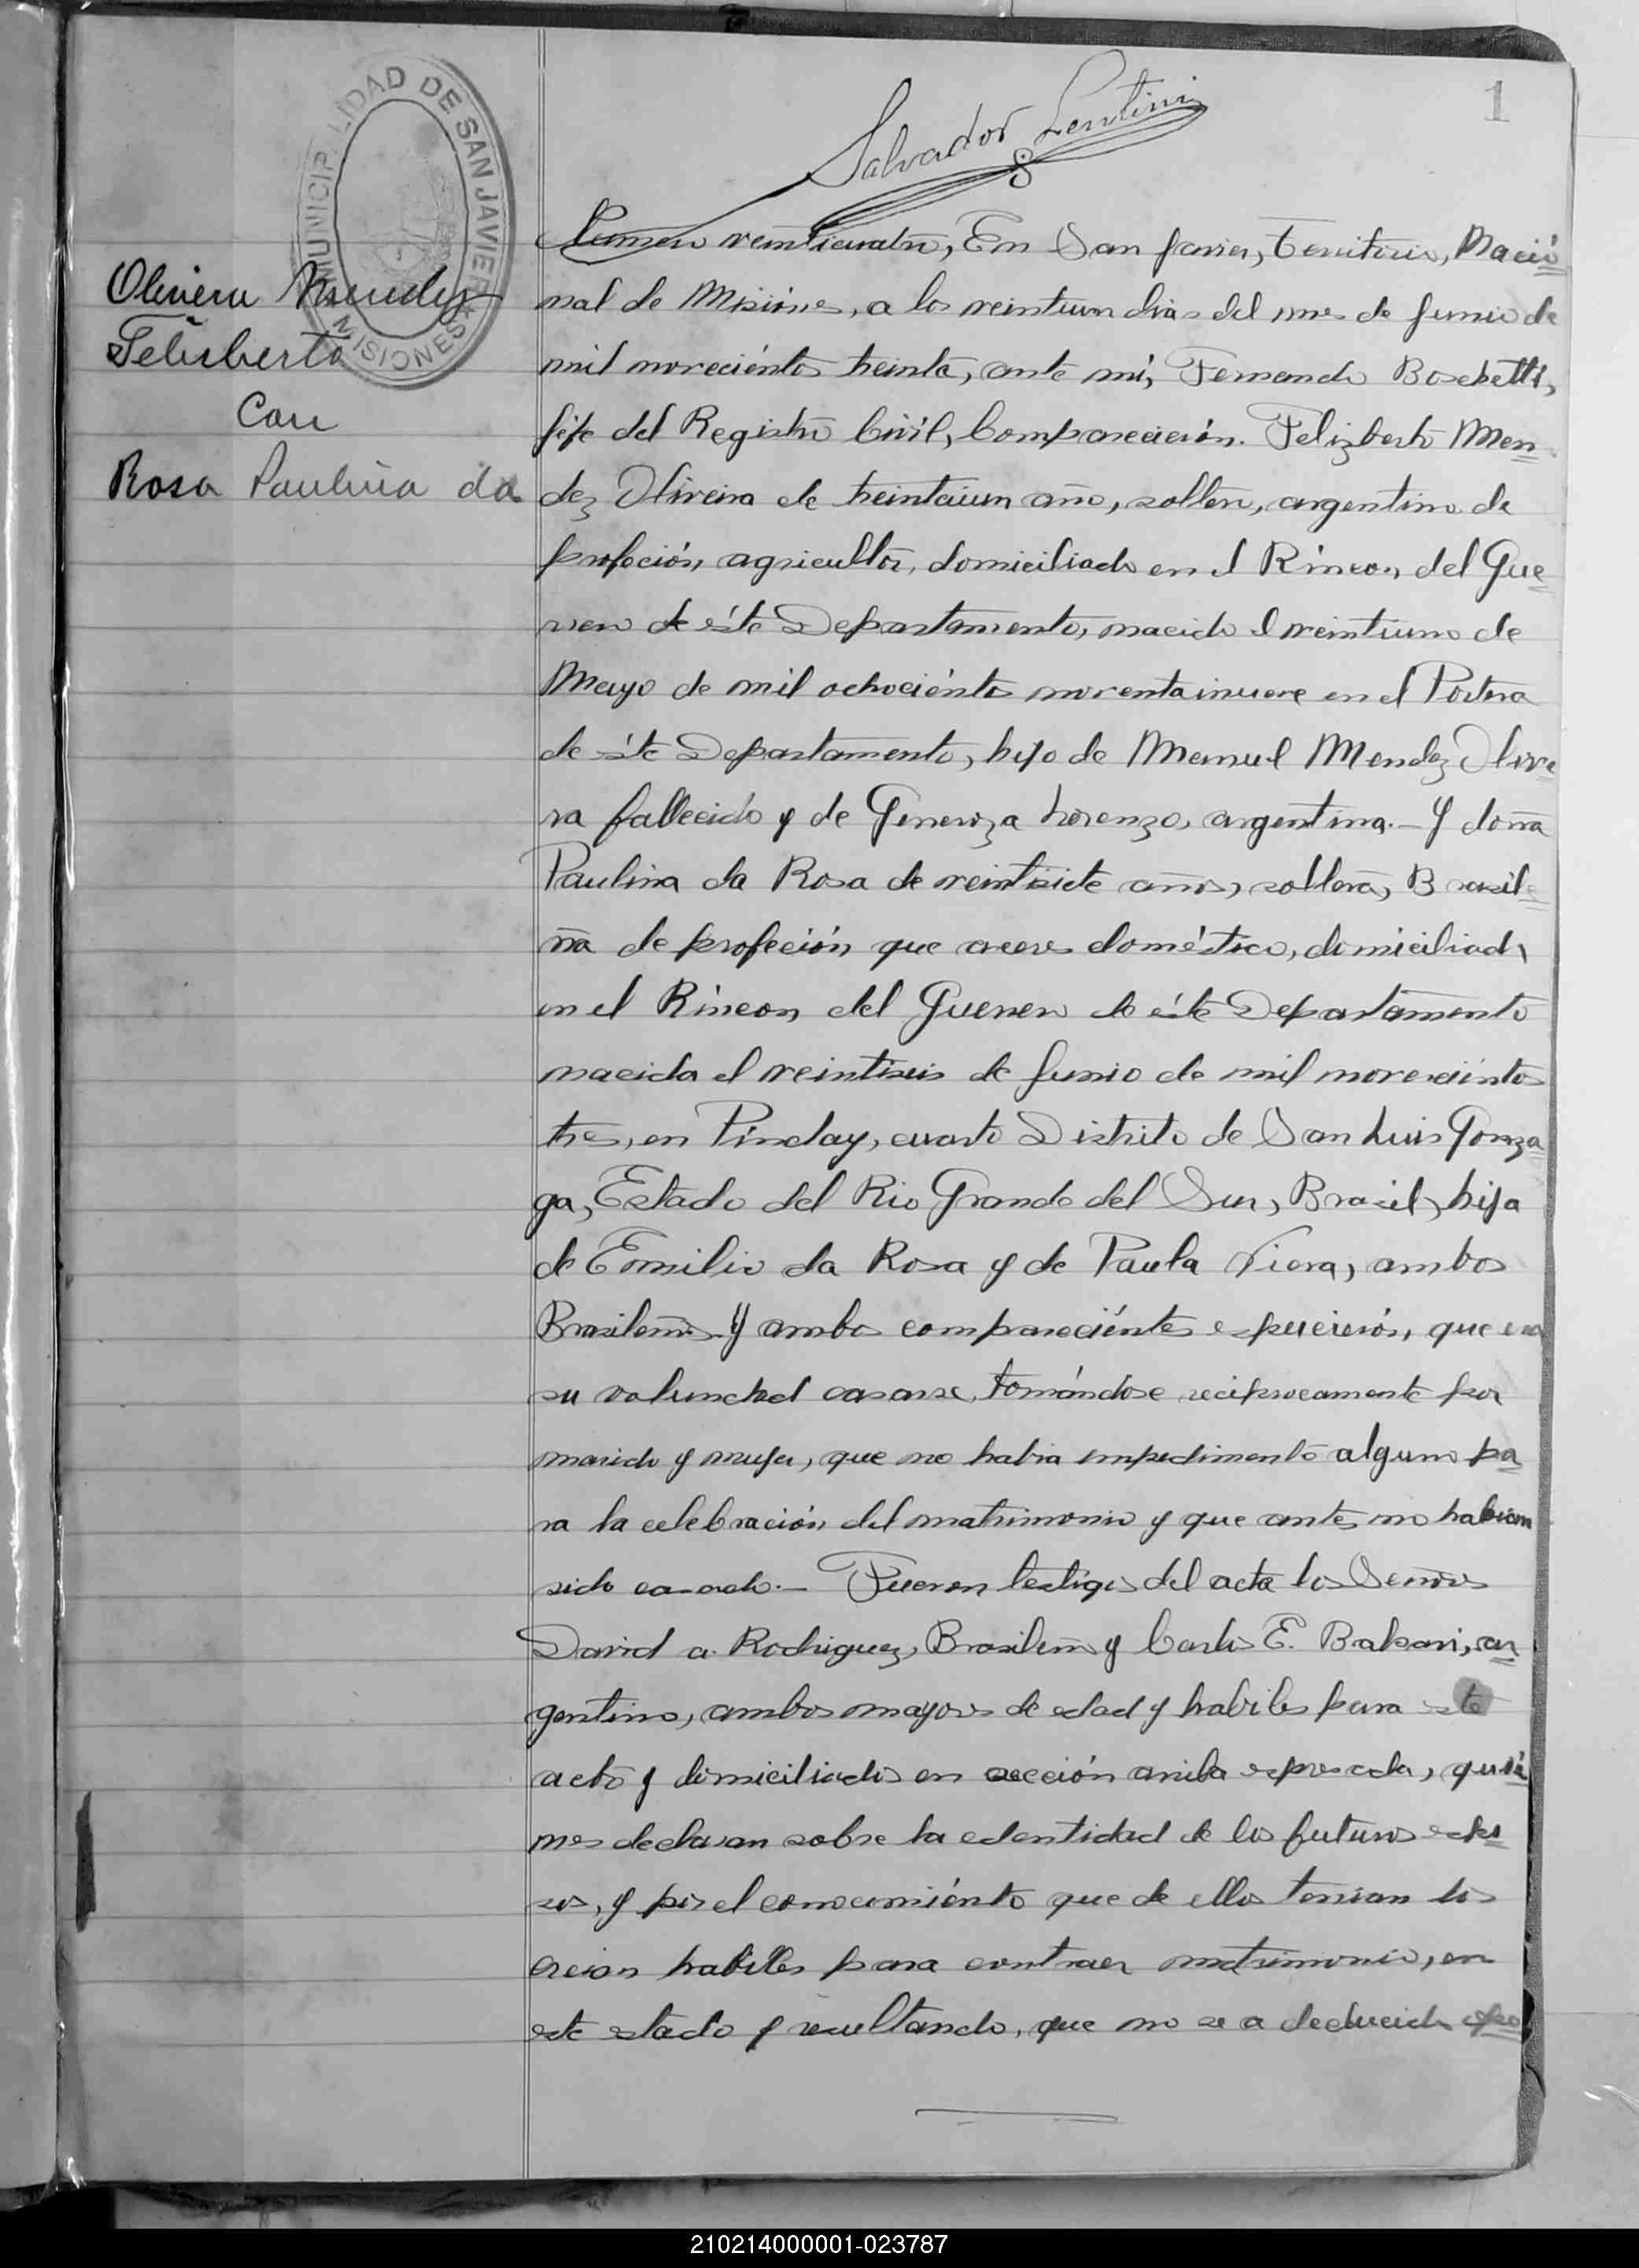 1
Salvador Lentini
MUNICIPALIDAD DE SAN JAVIER
MISIONES
Olivera Mendez
Felisberto
Con
Rosa Paulina da
Numero veinticuatro, En San Javier, Territorio, Nacio
nal de Misiones, a los veintiun dias del mes de Junio de
mil noveciéntos treinta, ante mi, Fernando Boschetti,
Jefe del Registro Civil, Comparecieron. Felizberto Men
dez Oliveira de treintaiun año, soltero, argentino de
profeción, agricultor, domiciliado en el Rincon, del Gue
rrero de éste Departamento, nacido el veintiuno de
Mayo de mil ochociénto noventainueve en el Portera
de éste Departamento, hijo de Manuel Mendez Olive
ra fallecido y de Generoza Lorenzo, argentina.- Y doña
Paulina da Rosa de veintisiete años, soltera, Brasile
ña de profeción, que aceres doméstico, domiciliada
en el Rincon, del Guerrero de éste Departamento
nacida el veintiseis de Junio de mil noveciéntos
tres, en Pinday, cuarto Distrito de San Luis Gonza
ga, Estado del Rio Grande del Sur, Brasil, hija
de Emilio da Rosa y de Paula Viera, ambos
Brasileños. Y ambos compareciéntes espucieron, que era
su voluntad casarse, tomándose reciprocamente por
marido y mujer, que no habia impedimento alguno pa
ra la celebración del matrimonio y que antes no habian
sido casado.- Fueron testigos del acta los Señores
David a. Rodriguez, Brasileño y Carlos E. Balsari, ar
gentino, ambos mayores de edad y habiles para este
acto y domiciliados en sección arriba espresada, quié
nes declaran sobre la edentidad de los futuros espo
sos, y por el conocimiénto que de ellos tenian los
creian habiles para contraer matrimonio, en
este estado y resultando, que no se a deducido opo
210214000001-023787